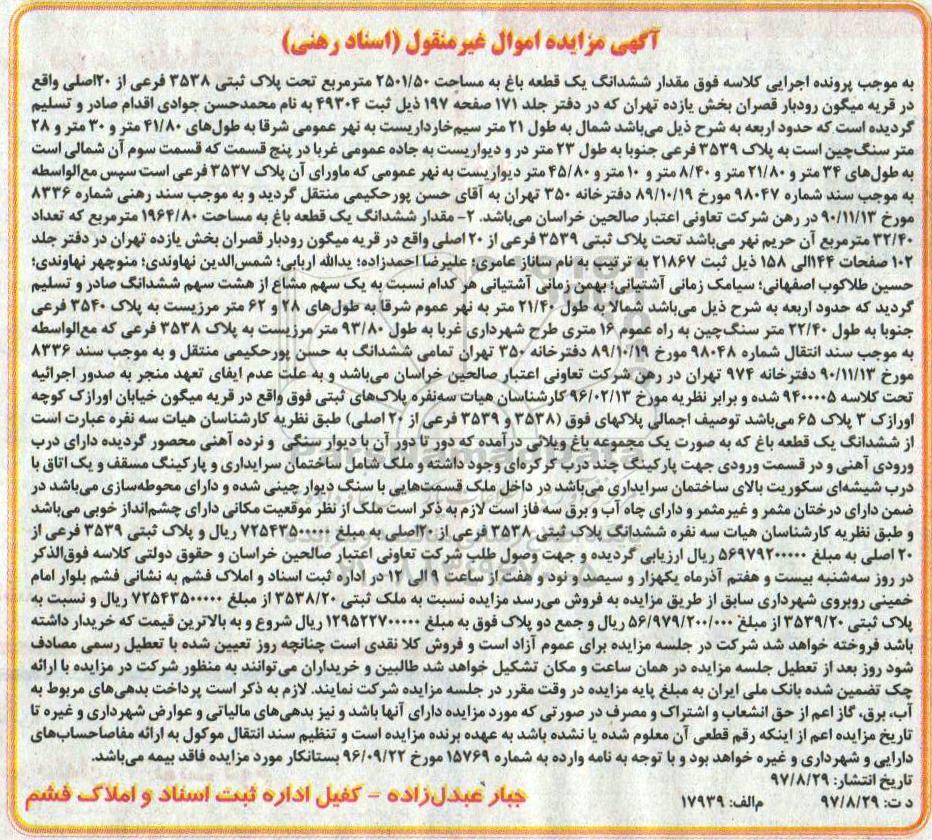 آگهی مزایده اموال غیرمنقول (اسناد رهنی)
به موجب پرونده اجرایی کلاسه فوق مقدار ششدانگ یک قطعه باغ به مساحت ۲۵۰۱/۵۰ مترمربع تحت پلاک ثبتی ۳۵۳۸ فرعی از ۲۰اصلی واقع
در قریه میگون رودبار قصران بخش یازده تهران که در دفتر جلد ۱۷۱ صفحه ۱۹۷ ذیل ثبت ۴۹۳۰۴ به نام محمدحسن جوادی اقدام صادر و تسلیم
گردیده است که حدود اربعه به شرح ذیل می‌باشد شمال به طول ۲۱ متر سیم‌خارداریست به نهر عمومی شرقا به طول‌های ۴۱/۸۰ متر و ۳۰ متر و ۲۸
متر سنگ‌چین است به پلاک ۳۵۳۹ فرعی جنوبا به طول ۲۳ متر در و دیواریست به جاده عمومی غربا در پنج قسمت که قسمت سوم آن شمالی است
به طول‌های ۳۴ متر و ۲۱/۸۰ متر و ۸/۴۰ متر و ۱۰ متر و ۴۵/۸۰ متر دیواریست به نهر عمومی که ماورای آن پلاک ۳۵۳۷ فرعی است سپس مع‌الواسطه
به موجب سند شماره ۹۸۰۴۷ مورخ ۸۹/۱۰/۱۹ دفترخانه ۳۵۰ تهران به آقای حسن پورحکیمی منتقل گردید و به موجب سند رهنی شماره ۸۳۳۶
مورخ ۹۰/۱۱/۱۳ در رهن شرکت تعاونی اعتبار صالحین خراسان می‌باشد. ۲- مقدار ششدانگ یک قطعه باغ به مساحت ۱۹۶۴/۸۰ مترمربع که تعداد
۳۲/۴۰ مترمربع آن حریم نهر می‌باشد تحت پلاک ثبتی ۳۵۳۹ فرعی از ۲۰ اصلی واقع در قریه میگون رودبار قصران بخش یازده تهران در دفتر جلد
۱۰۲ صفحات ۱۴۴الی ۱۵۸ ذیل ثبت ۲۱۸۶۷ به ترتیب به نام ساناز عامری؛ علیرضا احمدزاده؛ یدالله اربابی؛ شمس‌الدین نهاوندی؛ منوچهر نهاوندی؛
حسین طلاکوب اصفهانی؛ سیامک زمانی آشتیانی؛ بهمن زمانی آشتیانی هر کدام نسبت به یک سهم مشاع از هشت سهم ششدانگ صادر و تسلیم
گردید که حدود اربعه به شرح ذیل می‌باشد شمالا به طول ۲۱/۴۰ متر به نهر عموم شرقا به طول‌های ۲۸ و ۶۲ متر مرزیست به پلاک ۳۵۴۰ فرعی
جنوبا به طول ۲۲/۴۰ متر سنگ‌چین به راه عموم ۱۶ متری طرح شهرداری غربا به طول ۹۳/۸۰ متر مرزیست به پلاک ۳۵۳۸ فرعی که مع‌الواسطه
به موجب سند انتقال شماره ۹۸۰۴۸ مورخ ۸۹/۱۰/۱۹ دفترخانه ۳۵۰ تهران تمامی ششدانگ به حسن پورحکیمی منتقل و به موجب سند ۸۳۳۶
مورخ ۹۰/۱۱/۱۳ دفترخانه ۹۷۴ تهران در رهن شرکت تعاونی اعتبار صالحین خراسان می‌باشد و به علت عدم ایفای تعهد منجر به صدور اجرائیه
تحت کلاسه ۹۴۰۰۰۰۵ شده و برابر نظریه مورخ ۹۶/۰۲/۱۳ کارشناسان هیات سه‌نفره پلاک‌های ثبتی فوق واقع در قریه میگون خیابان اورازک کوچه
اورازک ۳ پلاک ۶۵ می‌باشد توصیف اجمالی پلاکهای فوق (۳۵۳۸ و ۳۵۳۹ فرعی از ۲۰ اصلی) طبق نظریه کارشناسان هیات سه نفره عبارت است
از ششدانگ یک قطعه باغ که به صورت یک مجموعه باغ ویلائی درآمده که دور تا دور آن با دیوار سنگی و نرده آهنی محصور گردیده دارای درب
ورودی آهنی و در قسمت ورودی جهت پارکینگ چند درب کرکره‌ای وجود داشته و ملک شامل ساختمان سرایداری و پارکینگ مسقف و یک اتاق با
درب شیشه‌ای سکوریت بالای ساختمان سرایداری می‌باشد در داخل ملک قسمت‌هایی با سنگ دیوار چینی شده و دارای محوطه‌سازی می‌باشد در
ضمن دارای درختان مثمر و غیرمثمر و دارای چاه آب و برق سه فاز است لازم به ذکر است ملک از نظر موقعیت مکانی دارای چشم‌انداز خوبی می‌باشد
و طبق نظریه کارشناسان هیات سه نفره ششدانگ پلاک ثبتی ۳۵۳۸ فرعی از ۲۰اصلی به مبلغ ۷۲۵۴۳۵۰۰۰۰۰ ریال و پلاک ثبتی ۳۵۳۹ فرعی از
۲۰ اصلی به مبلغ ۵۶۹۷۹۲۰۰۰۰۰ ریال ارزیابی گردیده و جهت وصول طلب شرکت تعاونی اعتبار صالحین خراسان و حقوق دولتی کلاسه فوق‌الذکر
در روز سه‌شنبه بیست و هفتم آذرماه یکهزار و سیصد و نود و هفت از ساعت ۹ الی ۱۲ در اداره ثبت اسناد و املاک فشم به نشانی فشم بلوار امام
خمینی روبروی شهرداری سابق از طریق مزایده به فروش می‌رسد مزایده نسبت به ملک ثبتی ۳۵۳۸/۲۰ از مبلغ ۷۲۵۴۳۵۰۰۰۰۰ ریال و نسبت به
پلاک ثبتی ۳۵۳۹/۲۰ از مبلغ ۵۶/۹۷۹/۲۰۰/۰۰۰ ریال و جمع دو پلاک فوق به مبلغ ۱۲۹۵۲۲۷۰۰۰۰۰ ریال شروع و به بالاترین قیمت که خریدار داشته
باشد فروخته خواهد شد شرکت در جلسه مزایده برای عموم آزاد است و فروش کلا نقدی است چنانچه روز تعیین شده با تعطیل رسمی مصادف
شود روز بعد از تعطیل جلسه مزایده در همان ساعت و مکان تشکیل خواهد شد طالبین و خریداران می‌توانند به منظور شرکت در مزایده با ارائه
چک تضمین شده بانک ملی ایران به مبلغ پایه مزایده در وقت مقرر در جلسه مزایده شرکت نمایند. لازم به ذکر است پرداخت بدهی‌های مربوط به
آب، برق، گاز اعم از حق انشعاب و اشتراک و مصرف در صورتی که مورد مزایده دارای آنها باشد و نیز بدهی‌های مالیاتی و عوارض شهرداری و غیره تا
تاریخ مزایده اعم از اینکه رقم قطعی آن معلوم شده یا نشده باشد به عهده برنده مزایده است و تنظیم سند انتقال موکول به ارائه مفاصاحساب‌های
دارایی و شهرداری و غیره خواهد بود و با توجه به نامه وارده به شماره ۱۵۷۶۹ مورخ ۹۶/۰۹/۲۲ بستانکار مورد مزایده فاقد بیمه می‌باشد.
تاریخ انتشار: ۹۷/۸/۲۹
د ت: ۹۷/۸/۲۹ م‌الف: ۱۷۹۳۹
جبار عبدل‌زاده - کفیل اداره ثبت اسناد و املاک فشم